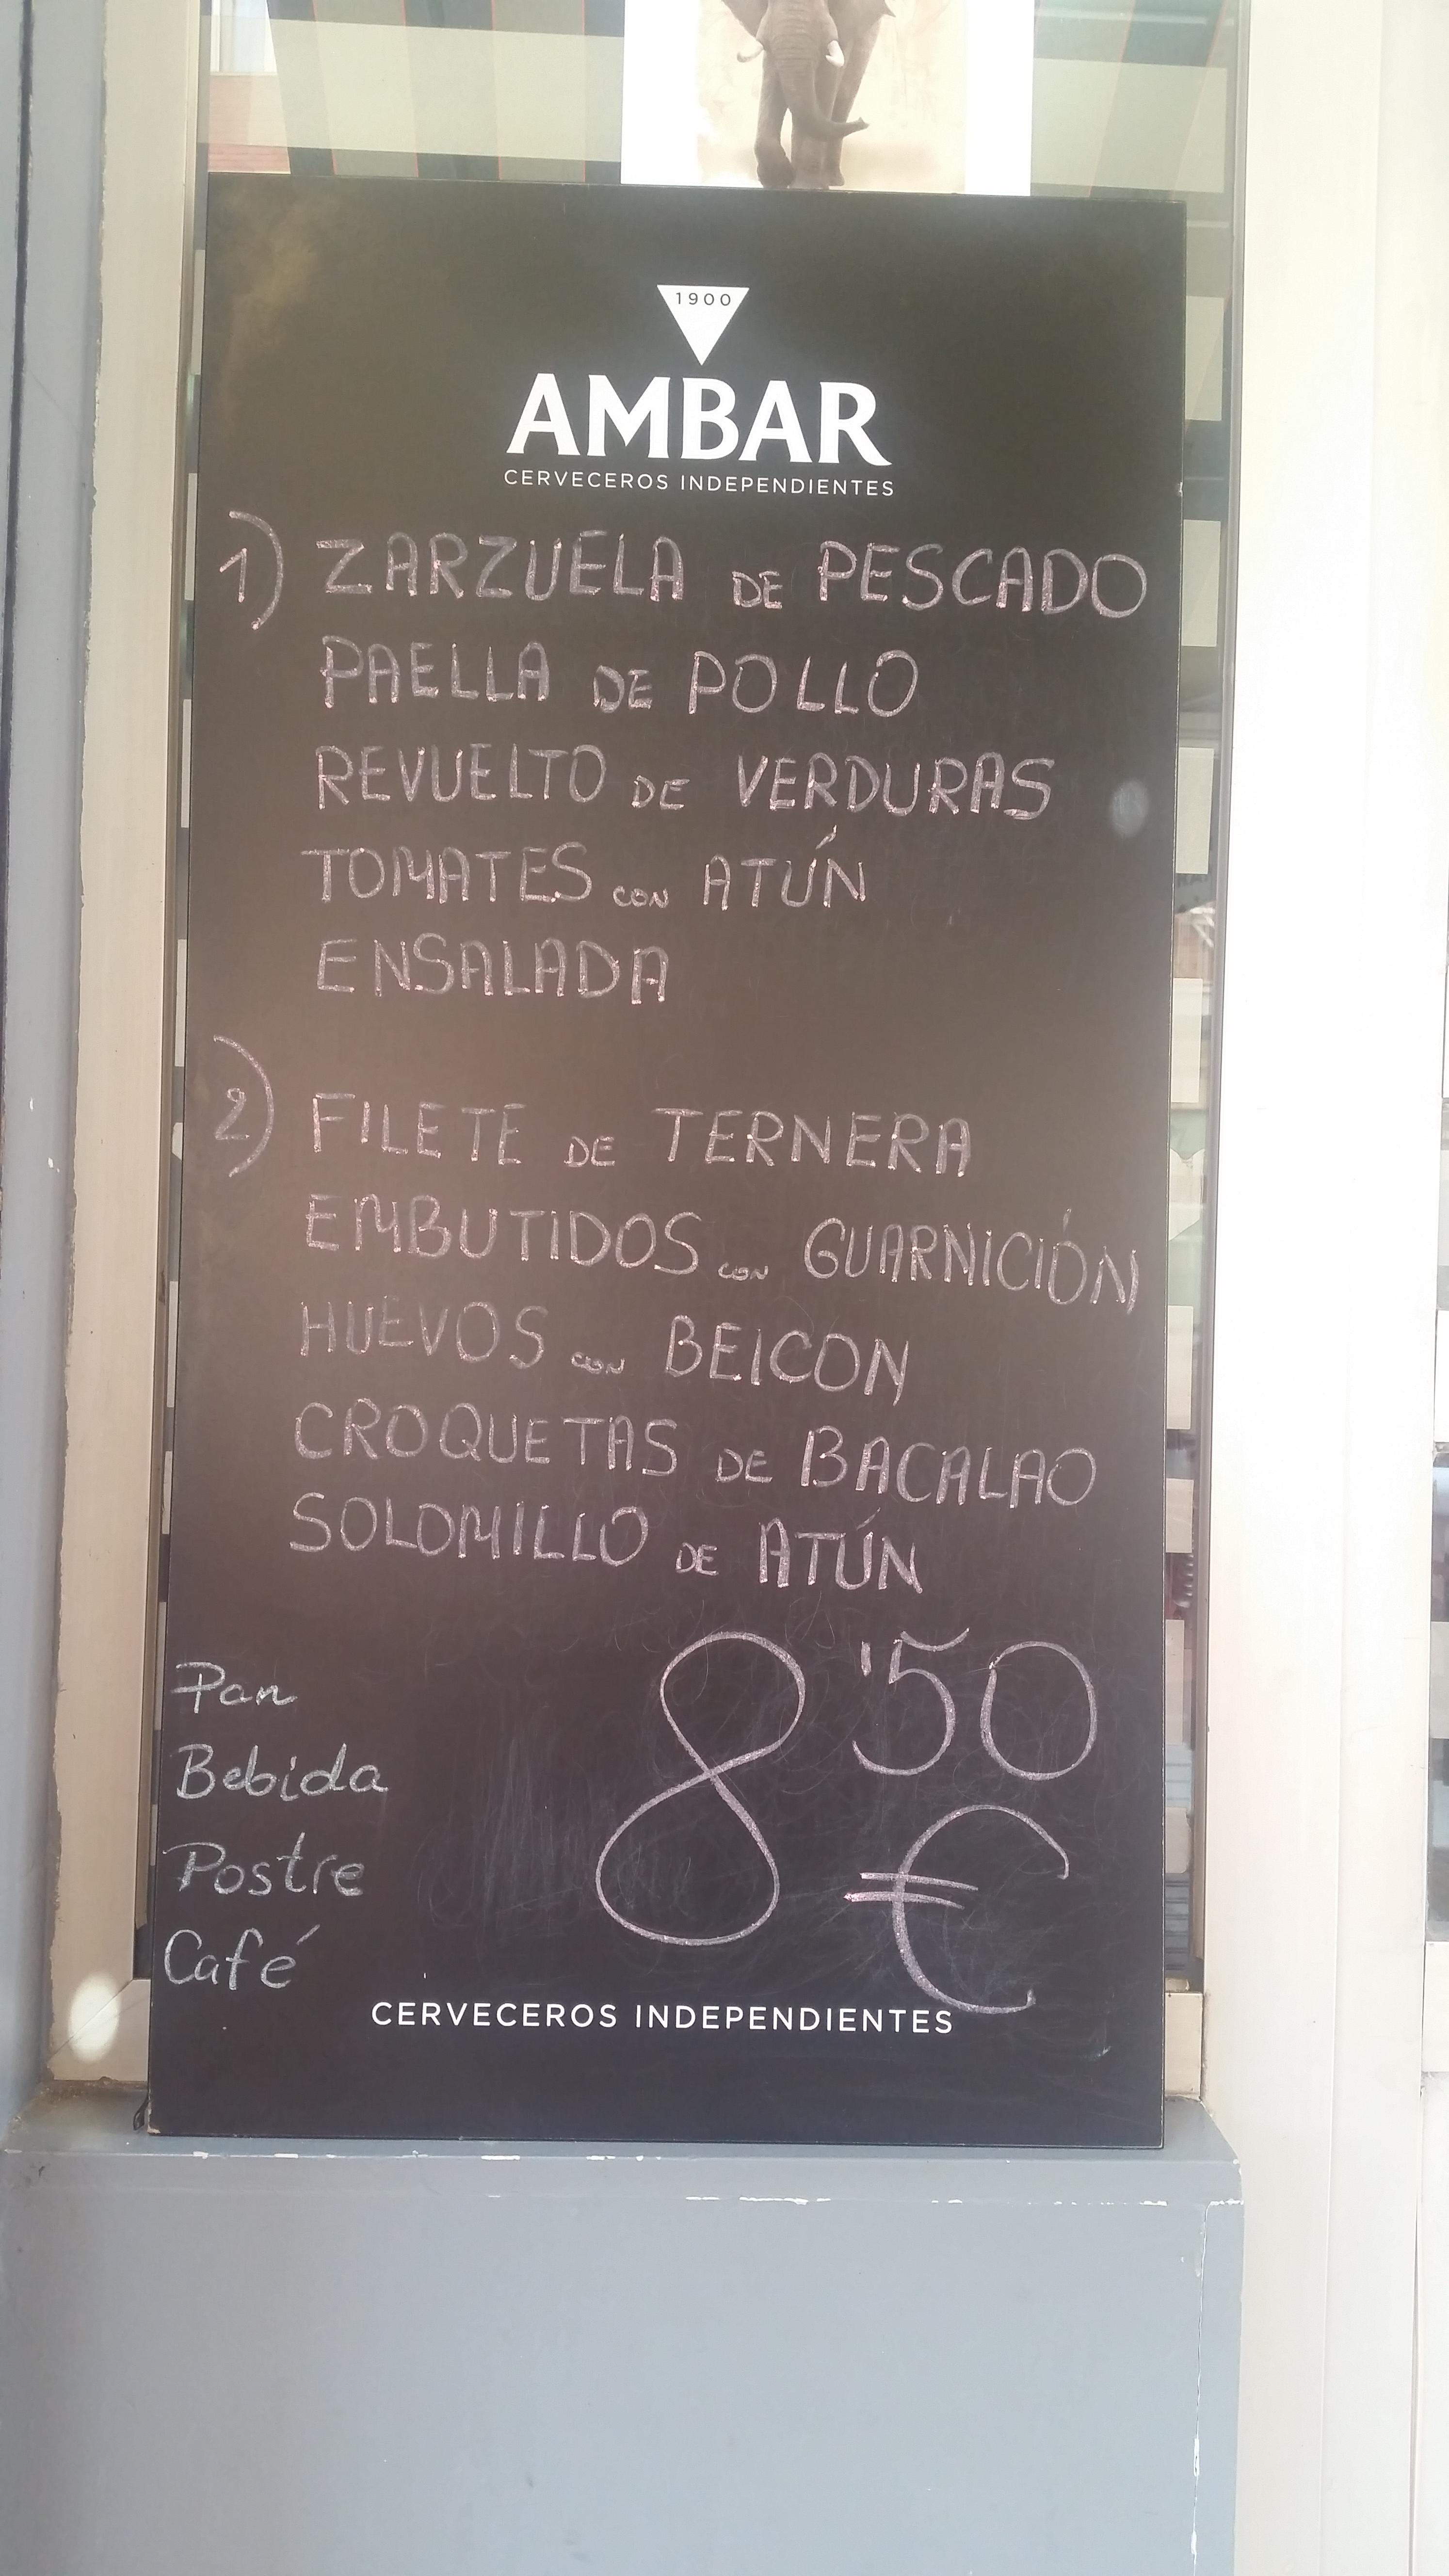 1900
AMBAR
CERVECEROS INDEPENDIENTES
1) ZARZUELA DE PESCADO
PAELLA DE POLLO
REVUELTO DE VERDURAS
TOMATES CON ATÚN
ENSALADA
2) FILETE DE TERNERA
EMBUTIDOS CON GUARNICIÓN
HUEVOS CON BEICON
CROQUETAS DE BACALAO
SOLOMILLO DE ATÚN
Pan
Bebida
Postre
Café
8'50
€
CERVECEROS INDEPENDIENTES